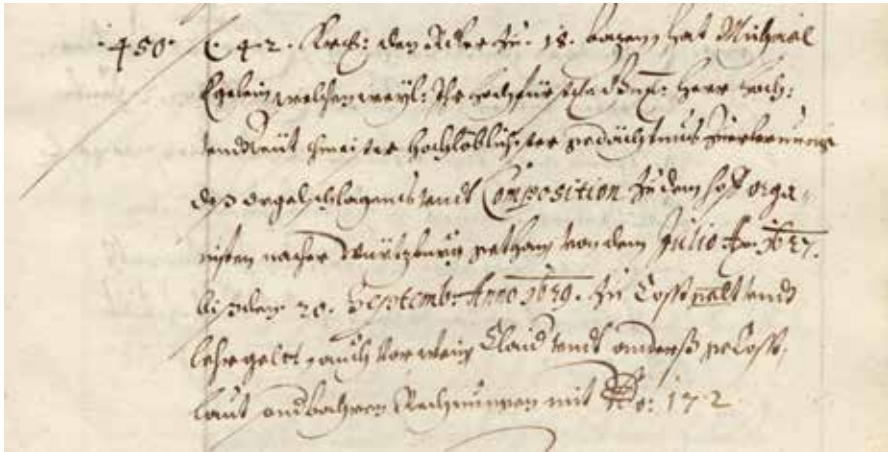 450. C. 42. Krez: den Reker zu. 18. bazen, hat Michael
Egelein, welchen weyl: Ihr hochfürstl: Gn: Herr Hoch:
undt Teütschmeister hochlöblichster gedächtnus zur erlernung
deß orgelschlagens undt Composition zu dem hoff orga-
nisten nacher Würtzburg gethan, von dem Julio Ao. 1627.
biß den 20. Septemb: Anno 1629. zu Costgelt undt
lehrgelt, auch vor wein Claid undt anderß gecost,
laut andbahren Rechnungen mit No: 172